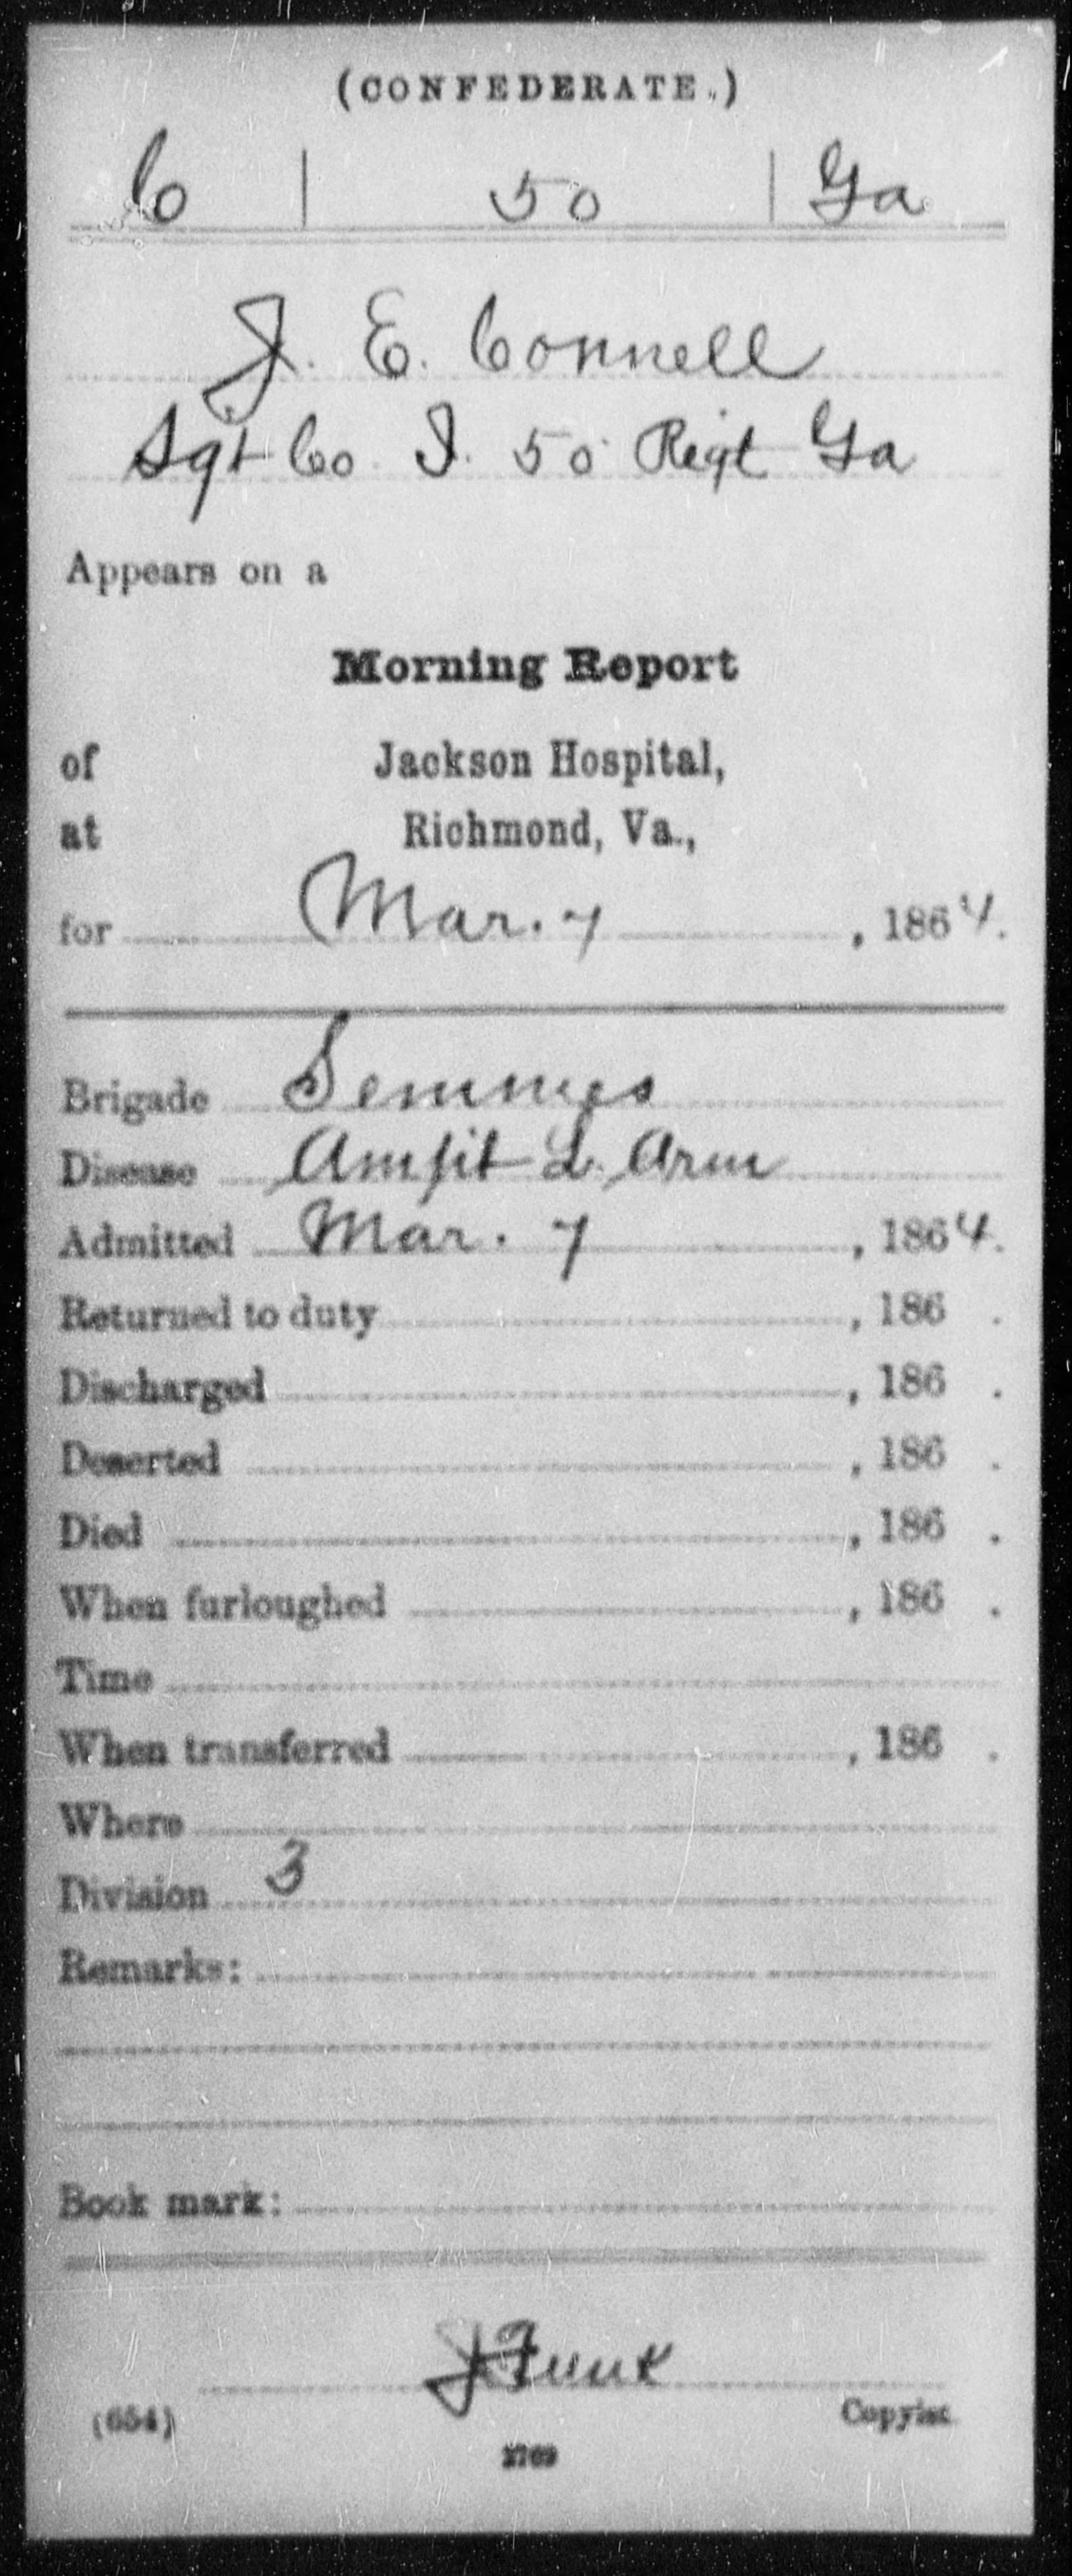 (CONFEDERATE.)
C | 50 | Ga
J. E. Connell
Sgt Co. I. 50 Regt Ga
Appears on a
Morning Report
of Jackson Hospital,
at Richmond, Va.,
for Mar. 7, 1864.
Brigade Semmes
Disease Amput L. Arm
Admitted Mar. 7, 1864.
Returned to duty, 186 .
Discharged, 186 .
Deserted, 186 .
Died, 186 .
When furloughed, 186 .
Time
When transferred, 186 .
Where
Division 3
Remarks:
Book mark:
J Funk
(654) Copyist.
2769